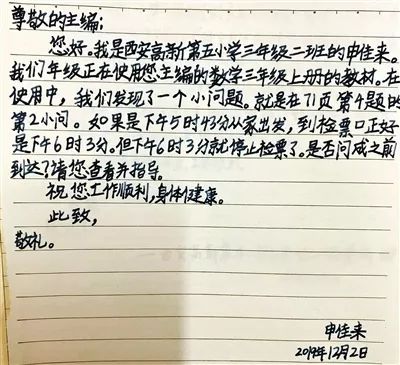 尊敬的主编:
您好。我是西安高新第五小学三年级二班的申佳来。
我们年级正在使用您主编的数学三年级上册的教材。在
使用中，我们发现了一个小问题。就是在71页第4题的
第2小问。如果是下午5时43分从家出发，到检票口正好
是下午6时3分。但下午6时3分就停止检票了。是否问成之前
到达？请您查看并指导。
祝您工作顺利，身体健康。
此致，
敬礼。
申佳来
2019年12月2日